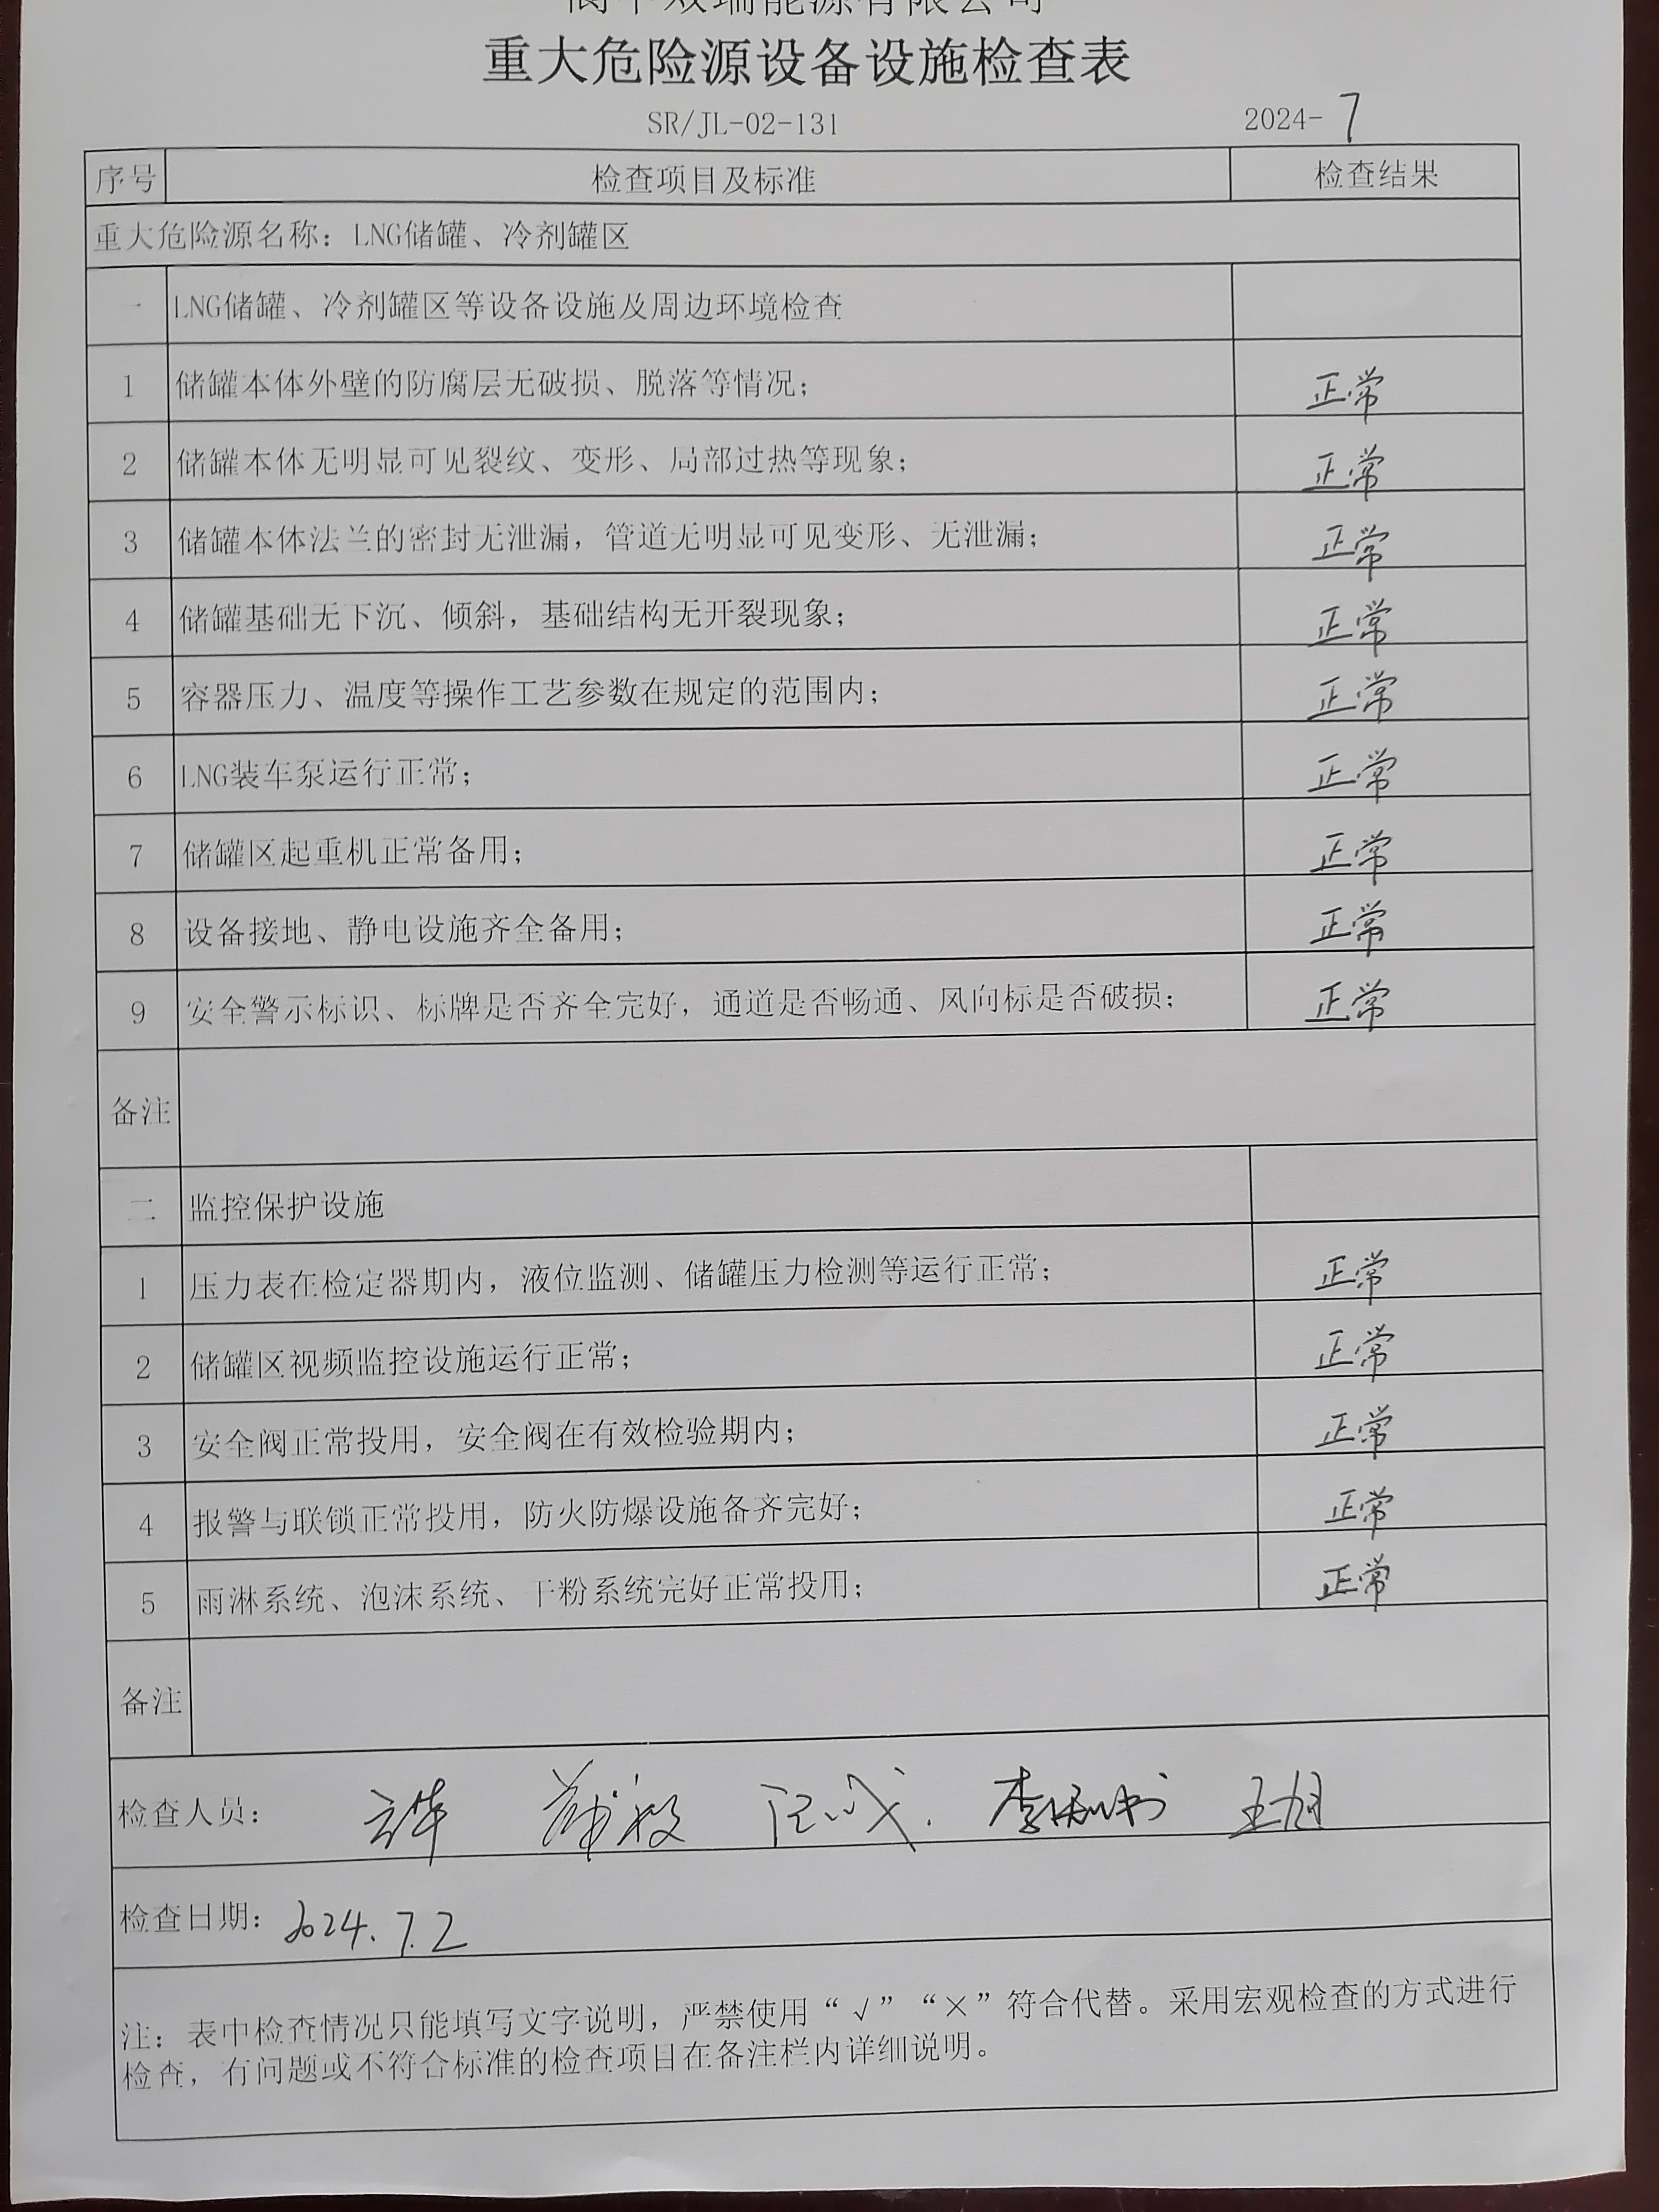 阆中双瑞能源有限公司
重大危险源设备设施检查表
SR/JL-02-131 2024-7
序号 检查项目及标准 检查结果
重大危险源名称：LNG储罐、冷剂罐区
一 LNG储罐、冷剂罐区等设备设施及周边环境检查
1 储罐本体外壁的防腐层无破损、脱落等情况； 正常
2 储罐本体无明显可见裂纹、变形、局部过热等现象； 正常
3 储罐本体法兰的密封无泄漏，管道无明显可见变形、无泄漏； 正常
4 储罐基础无下沉、倾斜，基础结构无开裂现象； 正常
5 容器压力、温度等操作工艺参数在规定的范围内； 正常
6 LNG装车泵运行正常； 正常
7 储罐区起重机正常备用； 正常
8 设备接地、静电设施齐全备用； 正常
9 安全警示标识、标牌是否齐全完好，通道是否畅通、风向标是否破损； 正常
备注
二 监控保护设施
1 压力表在检定器期内，液位监测、储罐压力检测等运行正常； 正常
2 储罐区视频监控设施运行正常； 正常
3 安全阀正常投用，安全阀在有效检验期内； 正常
4 报警与联锁正常投用，防火防爆设施备齐完好； 正常
5 雨淋系统、泡沫系统、干粉系统完好正常投用； 正常
备注
检查人员： 王旭
检查日期：2024.7.2
注：表中检查情况只能填写文字说明，严禁使用“√”“×”符合代替。采用宏观检查的方式进行
检查，有问题或不符合标准的检查项目在备注栏内详细说明。